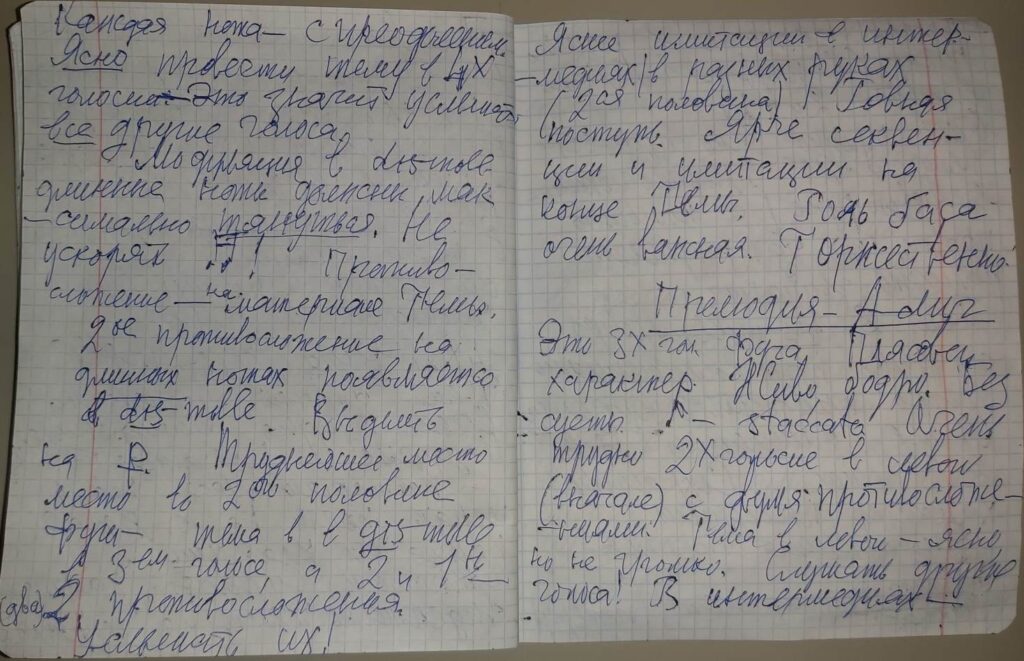 Каждая нота – с преодолением
Ясно провести тему в 4х
голосии. Это значит услышать
все другие голоса.
Модуляция в dis-moll
длинные ноты должны мак
–симально тянуться. Не
ускорять ! Противо–
сложение – на материале Темы.
2ое противосложение на
длинных нотах появляется
в dis-moll Выделить
на р. Труднейшее место
место во 2ой половине
фуги – тема в в dis-moll
в 3ем голосе, а 2 и 1й
(два) 2 противосложения.
Услышать их!
Яснее имитации в интер–
–медиях в разных руках
(2ая половина) Ровная
поступь. Ярче секвен–
ции и имитации на
конце Темы. Роль баса
очень важная. Торжественно.
Прелюдия – А dur
Это 3х гол фуга. Плясовой
характер. Живо, бодро. Без
суеты. – staccato Очень
трудно 2х голосие в левой
(вначале) с двумя противосложе–
–ниями. Тема в левой – ясно
но не громко. Слушать другие
голоса! В интермедиях –